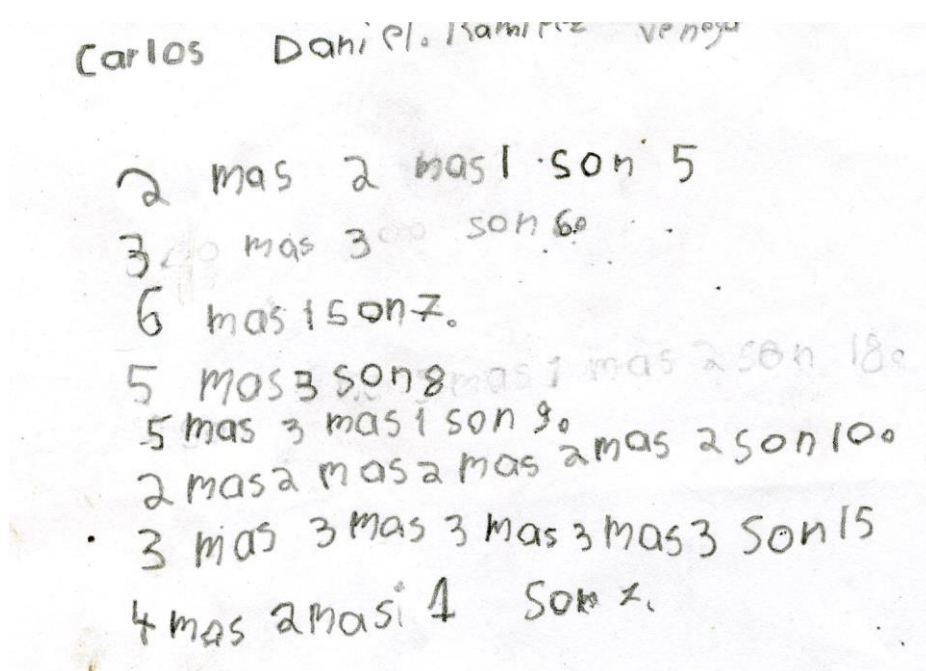 Carlos Daniel. Ramirez Venega
2 mas 2 mas 1 son 5
3 mas 3 son 6.
6 mas 1 son 7.
5 mas 3 son 8 mas 1 mas 2 son 18.
5 mas 3 mas 1 son 9.
2 mas 2 mas 2 mas 2 mas 2 son 10.
3 mas 3 mas 3 mas 3 mas 3 son 15
4 mas 2 masi 1 son 7.